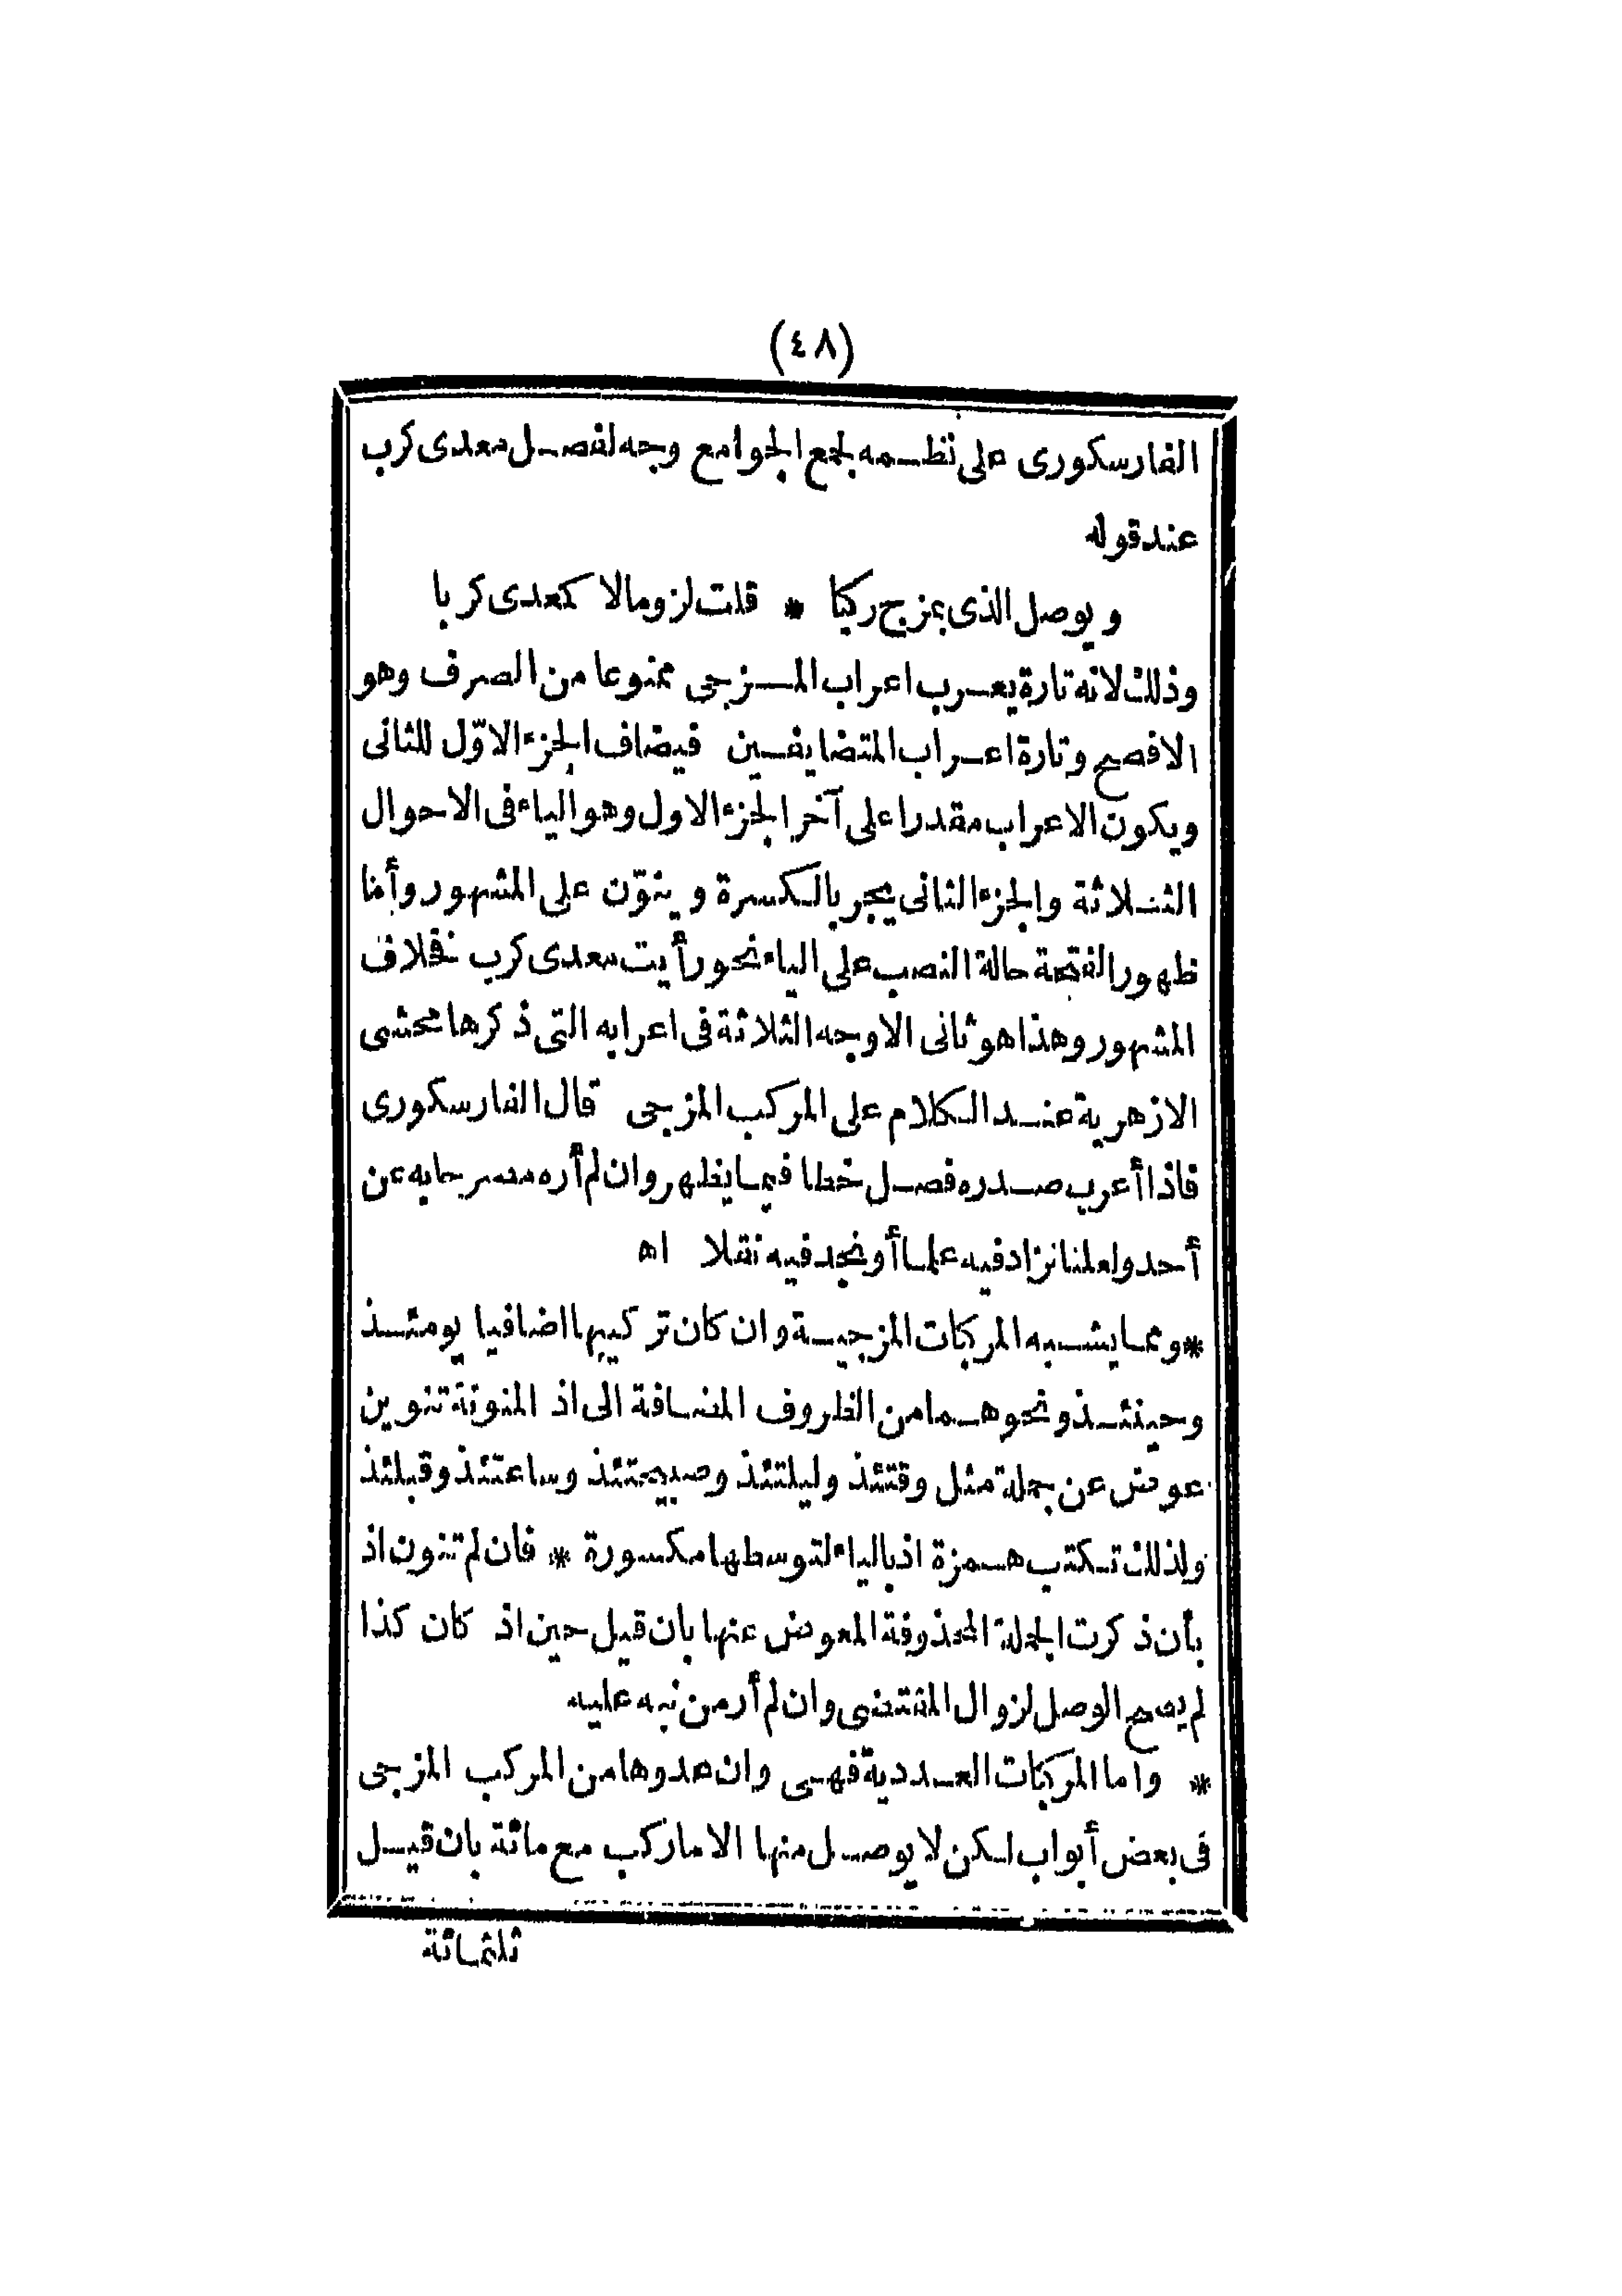 (٤٨)
الفارسكورى على نظمه لجمع الجوامع وجه لفصل معدى كرب
عند قوله
ويوصل الذى بمزج ركبا * قلت لزوما لا كمعدى كربا
وذلك لانه تارة يعرب اعراب المزجى ممنوعا من الصرف وهو
الافصح وتارة اعراب المتضايفين فيضاف الجزء الاوّل للثانى
ويكون الاعراب مقدرا على آخر الجزء الاول وهو الياء فى الاحوال
الثلاثة والجزء الثانى يجر بالكسرة وينوّن على المشهور وأما
ظهور الفتحة حالة النصب على الياء نحو رأيت معدى كرب فخلاف
المشهور وهذا هو ثانى الاوجه الثلاثة فى اعرابه التى ذكرها محشى
الازهرية عند الكلام على المركب المزجى قال الفارسكورى
فاذا أعرب صدره فصل خطا فيما يظهر وان لم أره مصرحا به عن
أحد ولعلنا نزاد فيه علما أو نجد فيه نقلا اه
* ومما يشبه المركبات المزجية وان كان تركيبها اضافيا يومئذ
وحينئذ ونحوهما من الظروف المضافة الى اذ المنونة تنوين
عوض عن جملة مثل وقتئذ وليلتئذ وصبيحتئذ وساعتئذ وقبلئذ
ولذلك تكتب همزة اذ بالياء لتوسطها مكسورة * فان لم تنون اذ
بأن ذكرت الجملة المحذوفة المعوض عنها بان قيل حين اذ كان كذا
لم يصح الوصل لزوال المقتضى وان لم أر من نبه عليه
* واما المركبات العددية فهى وان عدوها من المركب المزجى
فى بعض أبواب لكن لا يوصل منها الا ما ركب مع مائة بان قيل
ثلثمائة